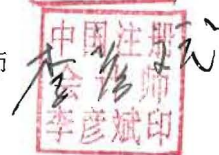 师
中国注册
会计师
李彦斌印